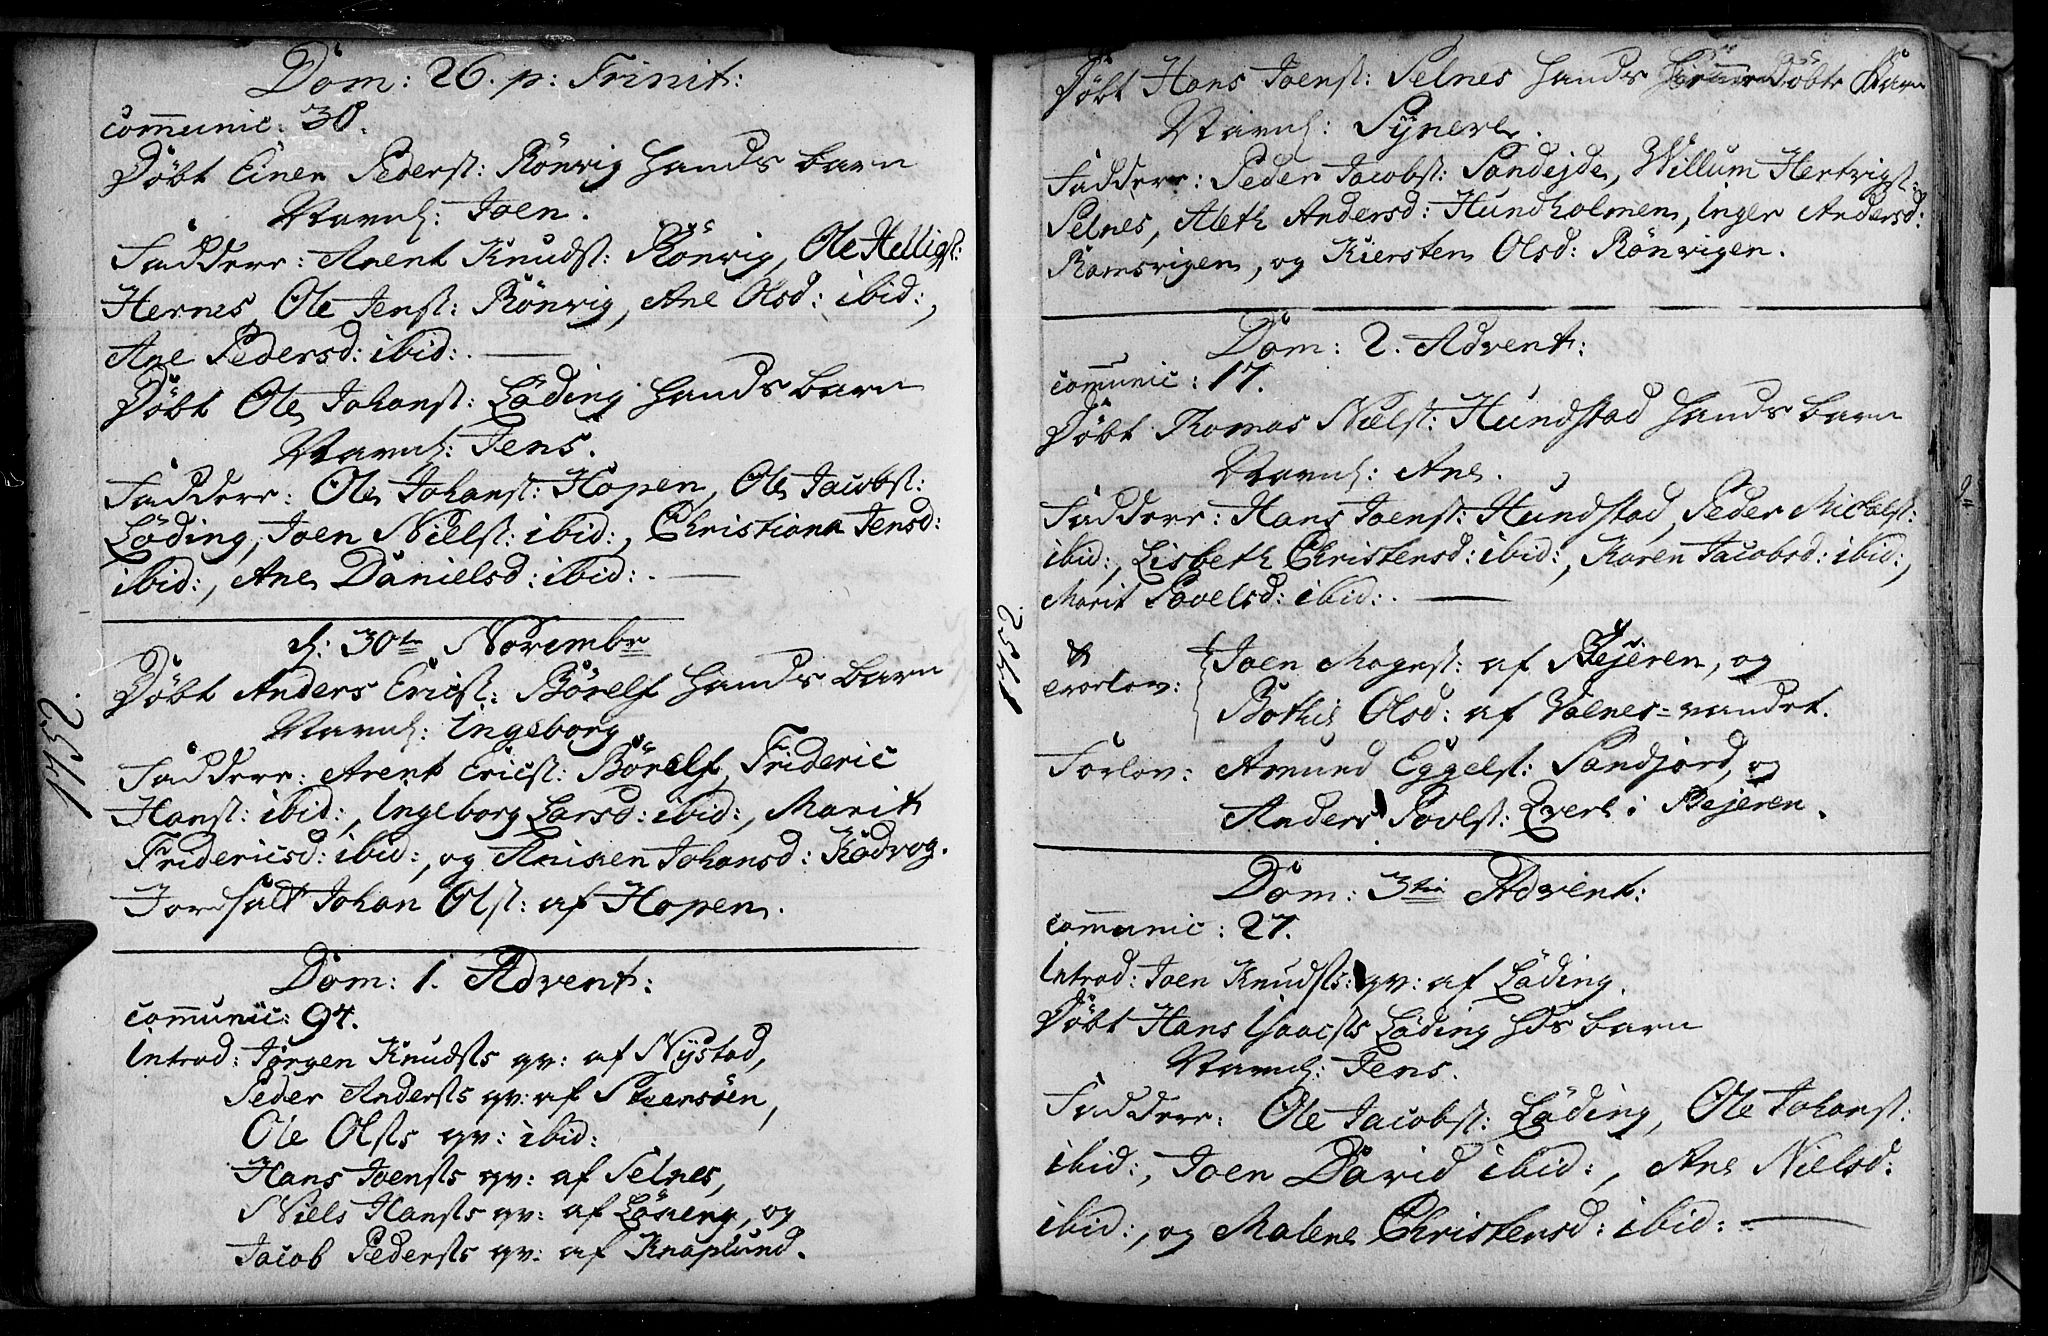 Dom: 26. p: Trinit:
communic: 30.
Døbt Einer Pederst: Rönvig Hands barn
Navnl: Joen.
Faddere: Arent Knudst: Rönvig, Ole Helligst:
Hernes, Ole Jenst: Rönvig, Ane Olsd: ibid:,
Ane Pedersd: ibid:.
Døbt Ole Johanst: Löding Hands barn
Navnl: Jens.
Faddere: Ole Johanst: Hopen, Ole Jacobst:
Löding, Joen Nielst: ibid:, Christiana Jensd:
ibid:, Ane Danielsd: ibid:.
d: 30te Novembr
Døbt Anders Ericst: Börelf Hands barn
Navnl: Ingeborg
Faddere: Arent Ericst: Börelf, Frideric
Hanst: ibid:, Ingeborg Larsd: ibid:, Marit
Fridericsd: ibid:, og Johansd: Kodvog.
Jordfæst Johan Olst: af Hopen.
1752.
Dom: 1. Advent:
communic: 94.
Introd: Jørgen Knudsts qv: af Nÿstad,
Peder Andersts qv: af
Ole Olsts qv: ibid:
Hans Joensts qv: af Selnes,
Niels Hansts qv: af Löding, og
Jacob Pedersts qv: af Knaplund.
Døbt Hans Joenst: Selnes Hands Døbte Barn
Navnl: Sÿnere.
Faddere: Peder Jacobst: Sandejde, Willum Hertvigst:
Selnes, Aleth Andersd: Hundholmen, Inger Andersd:
Ramsvigen, og Kiersten Olsd: Rönvigen.
Dom: 2. Advent:
comunic: 17.
Døbt Thomas Nielst: Hundstad Hands barn
Navnl: Ane.
Faddere: Hans Joenst: Hundstad, Peder Mickelst:
ibid:, Lisbeth Christensd: ibid:, Karen Jacobsd: ibid:,
Marit Povelsd: ibid:.
1752
Troelov: Joen Mogenst: af Bejeren, og
Olsd: af Valnes=vandet.
Forlov: Amund Eggelst: Sandjord, og
Anders Povlst: i Bejeren.
Dom: 3tia Advent:
communic: 27.
Introd: Joen Knudsts: qv: af Löding.
Døbt Hans Isaacsts Löding Hds barn
Navnl: Jens.
Faddere: Ole Jacobst: Löding, Ole Johanst:
ibid:, Joen David ibid:, Ane Nielsd:
ibid:, og Malene Christensd: ibid:.